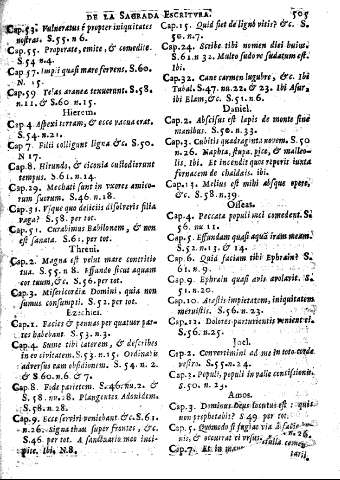 DE LA SAGRADA ESCRITVRA. 505
Cap.53. Vulneratus é propter iniquitates
nostras. S.55. n.6.
Cap.55. Properate, emite, & comedite.
S.54 n.4.
Cap.57. Impii quasi mare fervens. S.60.
N. 15.
Cap.59 Telas araneæ texuerunt. S.58.
n.11. & S.60 n.15.
Hierem.
Cap.4 Aspexi terram, & ecce vacua erat.
S.54. n.21.
Cap.7 Filii colligunt ligna &c. S.50.
N 17.
Cap.8. Hirundo, & ciconia custodierunt
tempus. S.61. n.14.
Cap.29. Mechati sunt in uxores amico-
rum suorum. S.46. n.18.
Cap.31. Vsque quo deliciis dissolveris filia
vaga? S.58. per tot.
Cap.51. Curabimus Babilonem, & non
est sanata. S.61. per tot.
Threni.
Cap.2. Magna est velut mare contritio
tua. S.55. n 8. Effunde sicut aquam
cor tuum, &c. S.56. per tot.
Cap.3. Misericordia Domini, quia non
sumus consumpti. S.52. per tot.
Ezechiel.
Cap.1. Facies & pennas per quatuor par-
tes habebant. S.53. n.3.
Cap.4. Sume tibi laterem, & describes
in eo civitatem. S.53. n.15. Ordinabis
adversus eam obsidionem. S.54. n.2.
& S 60. n.6 & 7.
Cap.8. Fode parietem. S.46. nu.2. &
S,58. nu.28. Plangentes Adonidem.
S.58. n.28.
Cap.9. Ecce sex viri veniebant &c. S.61.
n.26. Signa thau super frontes, &c.
S.46 per tot. A sanctuario meo inci-
pite. Ibi, N.8.
Cap.15. Quid fiet de ligno vitis? &c. S.
50. n.7.
Cap.24. Scribe tibi nomen diei huius.
S.61. n 32. Multo sudore sudatum est.
Ibi.
Cap.32. Cane carmen lugubre, &c. Ibi
Tubal. S.47. nu.22. & 23. Ibi Asur,
ibi Elam, &c. S.51. n.6.
Daniel.
Cap.2. Abscisus est lapis de monte sine
manibus. S.56. n.33.
Cap.3. Cubitis quadraginta novem. S.50
n.26. Naphta, stupa, pice, & malleo-
lis. Ibi. Et incendit quos reperit iuxta
fornacem de chaldæis. ibi.
Cap.13. Melius est mihi absque opere,
&c. S.58. n.39.
Oseas.
Cap.4. Peccata populi mei comedent. S.
56. nu 11.
Cap.5. Effundam quasi aquã iram meam.
S.52. n.13. & 14.
Cap.6. Quid faciam tibi Ephraim? S.
61. n.9.
Cap.9 Ephraim quasi avis avolavit. S.
51. n.20.
Cap.10. Arastis impietatem, iniquitatem
messuistis. S.56. n.23.
Cap.12. Dolores parturientis venient ei.
S.56. n.25.
Joel.
Cap.2. Convertimini ad me in toto corde
vestro. S.55. n.24.
Cap.3. Populi, populi in valle concisionis.
S.50. n.23.
Amos.
Cap.3. Dominus Deus locutus est: quis
non prophetabit? S 49. per tot.
Cap.5. Quomodo si fugiat vir à facie
nis, & occurrat ei ursus. n.26.
Cap.7. Et in manu